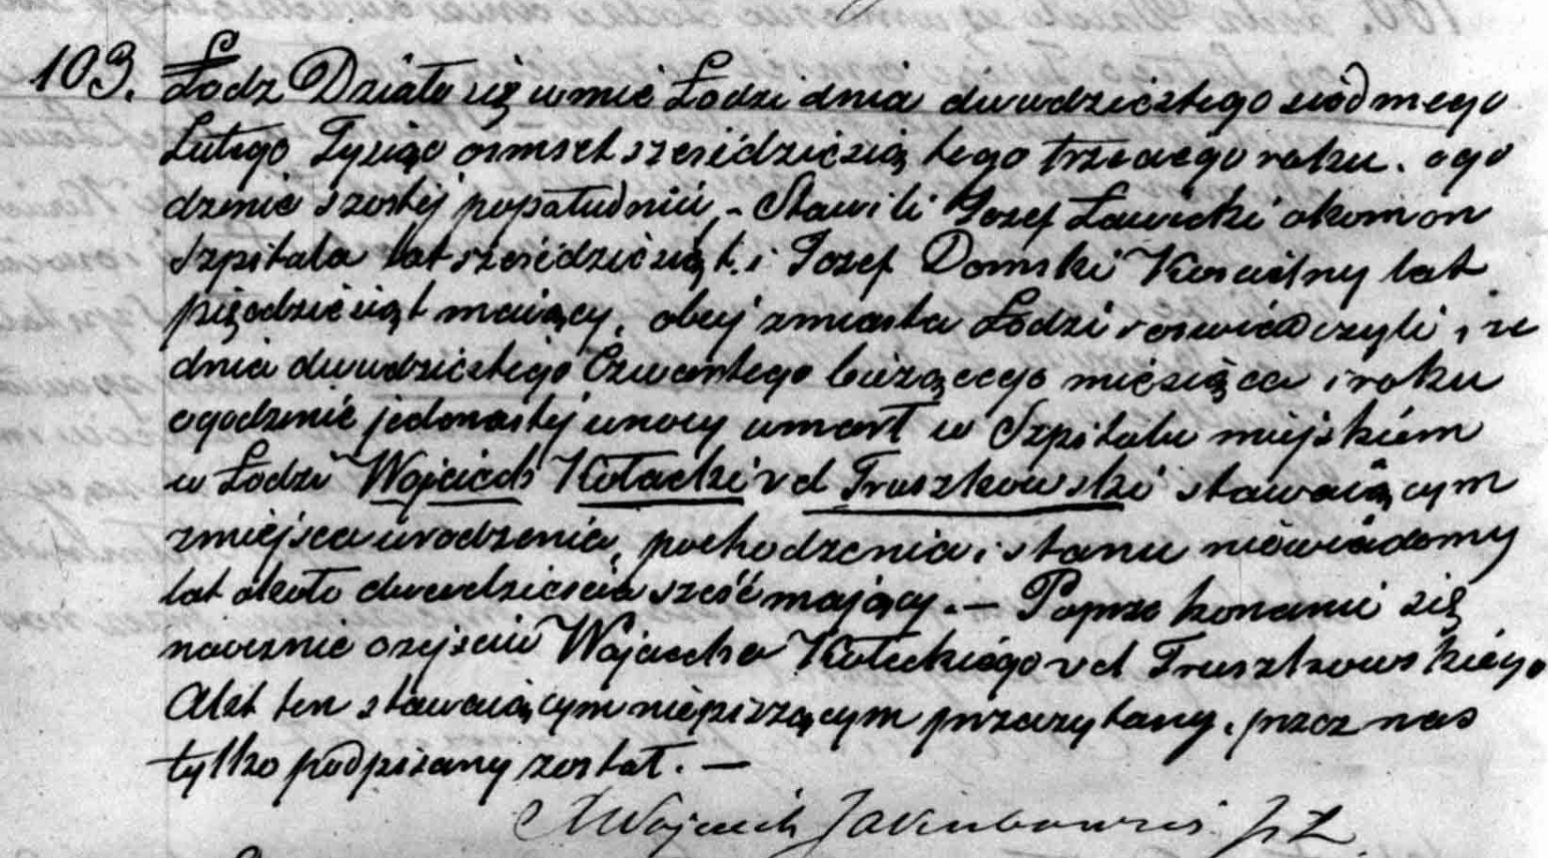 103. Łodz Działo się w mic Łodzi dnia dwudziestego siódmego
Lutego Tysiąc osmset sześidziesią tego trzeciego roku. o go
dzinie szostéj popołudniu, – Stawili Jozef Ławicki okomon
Szpitala lat sześidziesiąt. i Jozef Domski Koscielny lat
pięćdziesiąt maiący, obaj z miasta Łodzi i oswiadczyli, że
dnia dwudziestego Czwartego bieżącego miesiąca i roku
o godzinie jedenastéj w nocy umarł w Szpitalu miejskiem
w Łodzi Wojciech Kołacki vel Truszkowski stawaiącym
z miejsca urodzenia, pochodzenia i stanu niewiadomy
lat około dwadzieścia sześć mający. – Poprze konaniu się
naocznie o zejściu Wojciecha Kołackiego vel Truszkowskiego
Akt ten stawaiącym niepiszącym przeczytany, przez nas
tylko podpisany został. –
X Wojciech Jakubowski